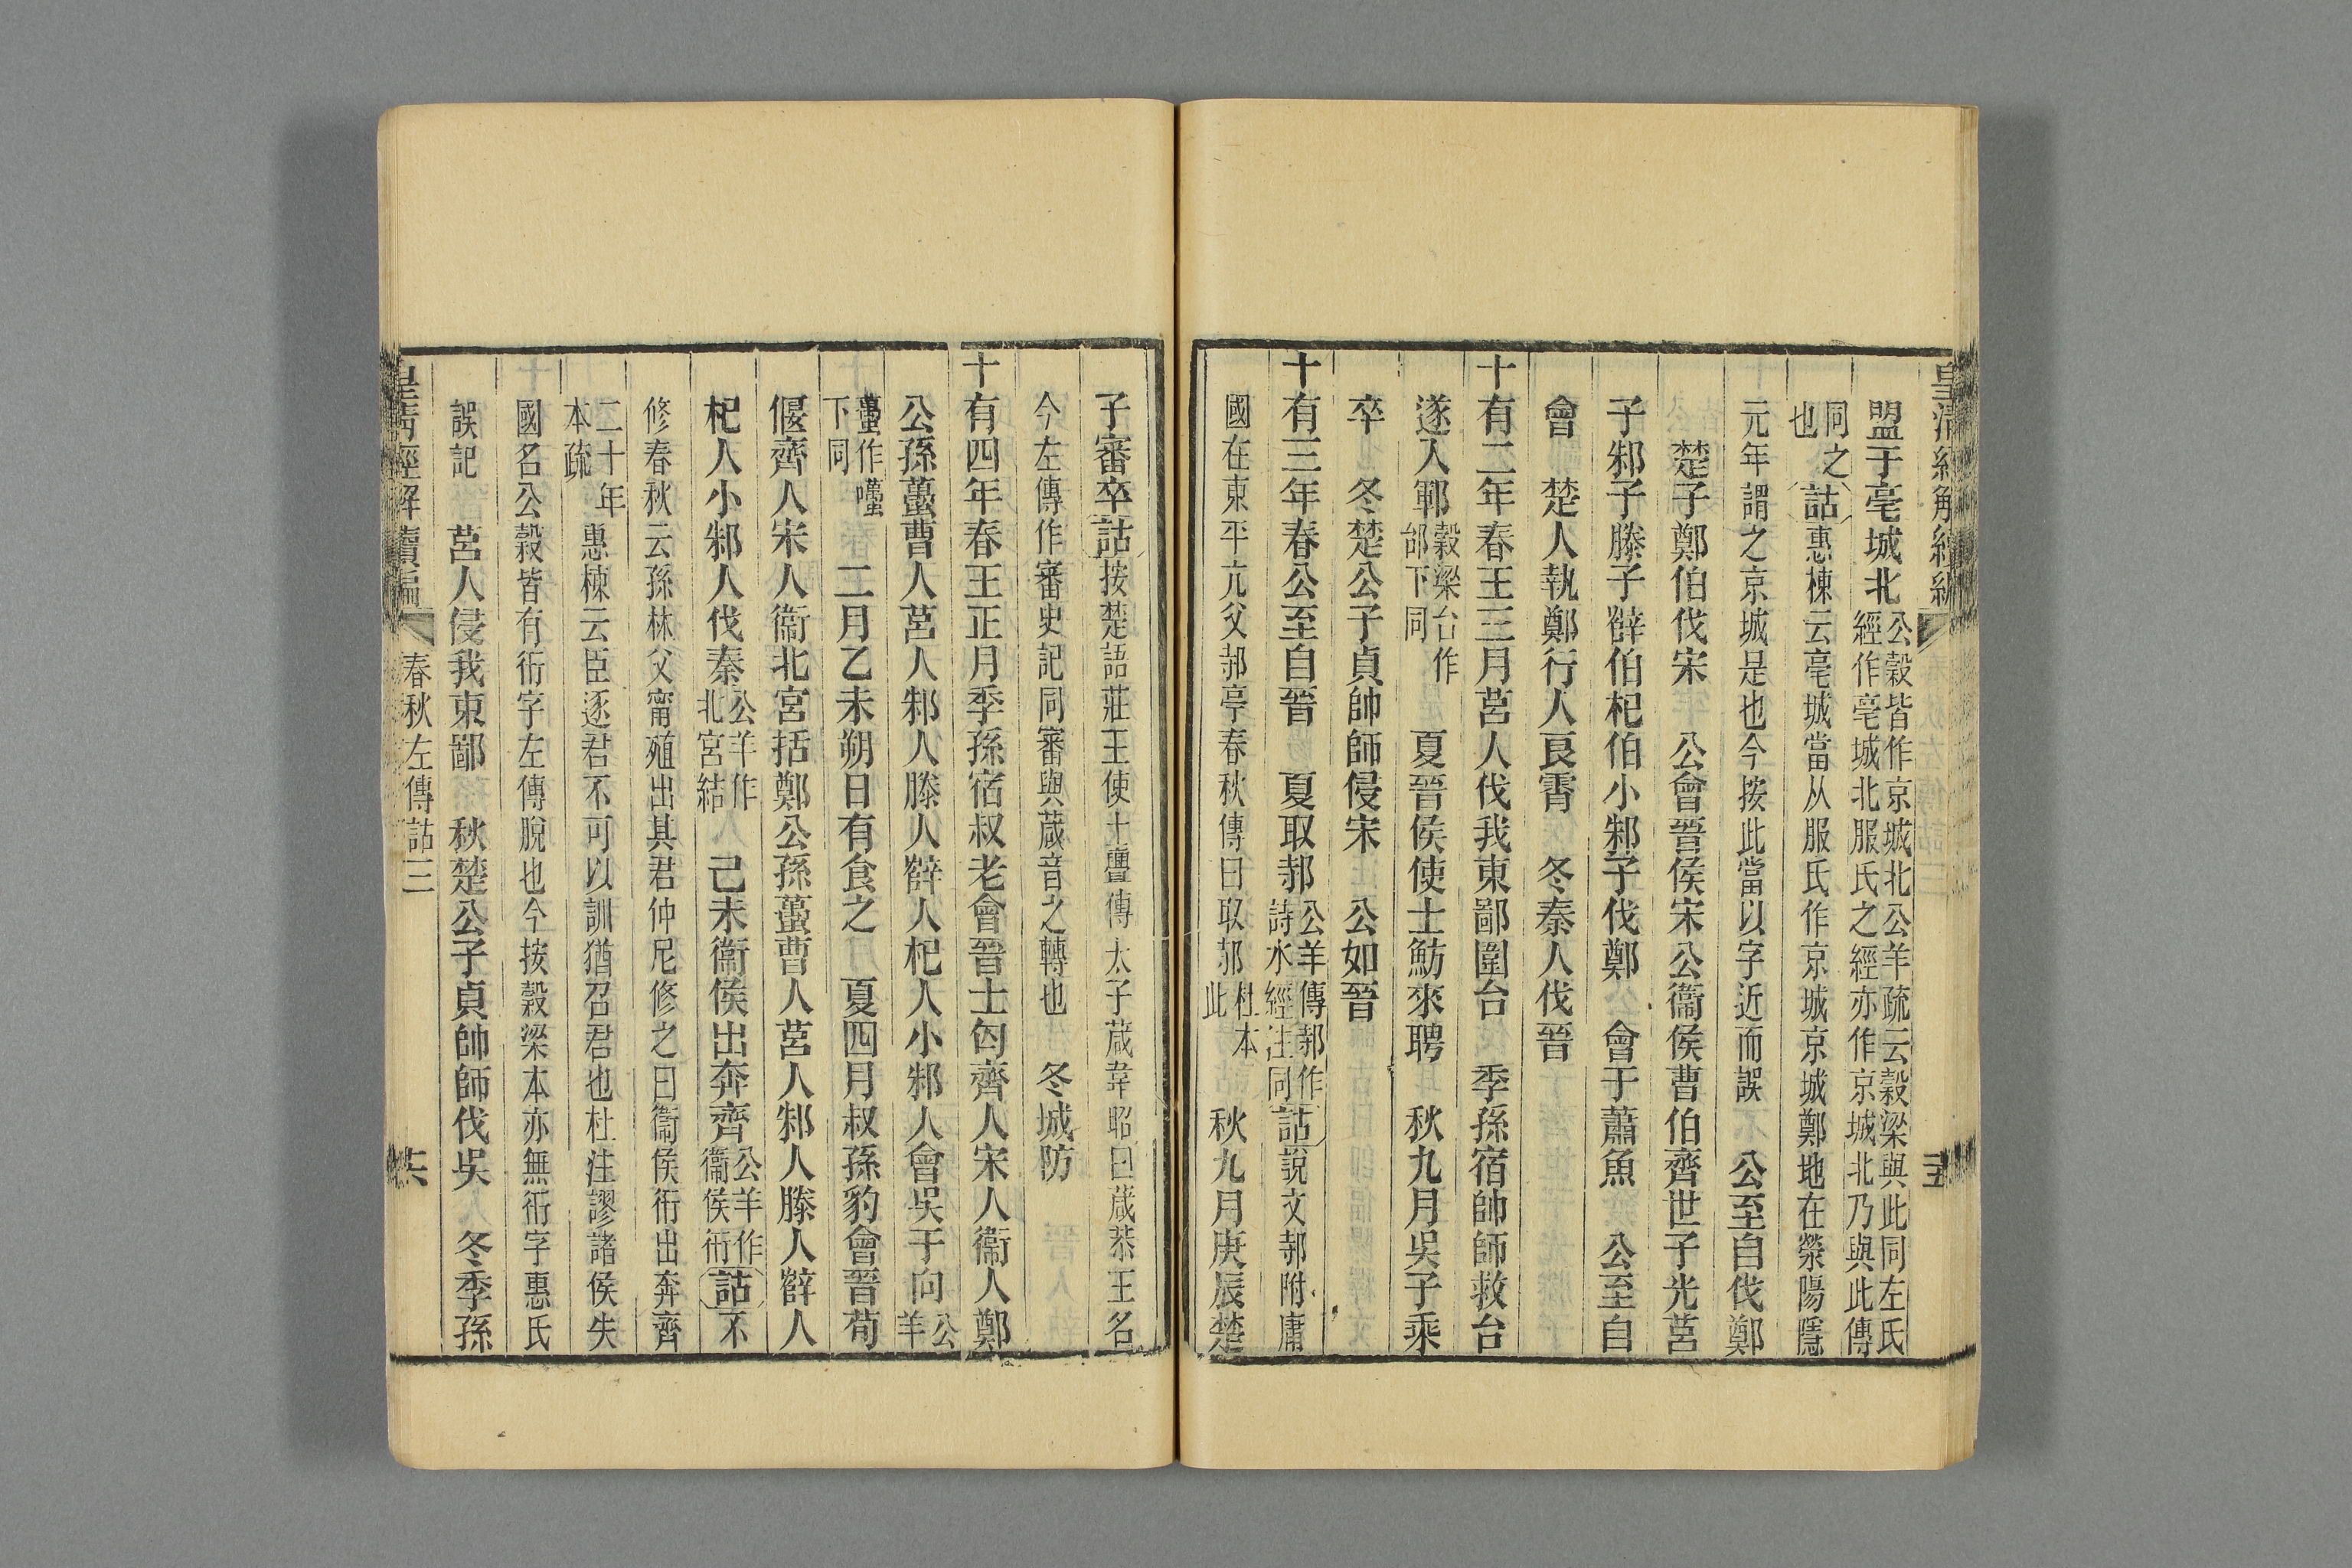 皇清經解續編
五
盟于亳城北公穀皆作京城北公羊疏云穀梁與此同左氏經作亳城北服氏之經亦作京城北乃與此傳
同之也詁惠棟云亳城當从服氏作京城京城鄭地在滎陽隱
元年謂之京城是也今按此當以字近而誤　公至自伐鄭
楚子鄭伯伐宋　公會晉侯宋公衞侯曹伯齊世子光莒
子邾子滕子薛伯杞伯小邾子伐鄭　會于蕭魚　公至自
會　楚人執鄭行人良霄　冬秦人伐晉
十有二年春王三月莒人伐我東鄙圍台　季孫宿帥師救台
遂入鄆穀梁台作邰下同　夏晉侯使士魴來聘　秋九月吳子乘
卒　冬楚公子貞帥師侵宋　公如晉
十有三年春公至自晉　夏取邿公羊傳邿作詩水經注同詁說文邿附庸
國在東平亢父邿亭春秋傳曰取邿杜本此　秋九月庚辰楚
子審卒詁按楚語莊王使士亹傳太子葴韋昭曰葴恭王名
今左傳作審史記同審與葴音之轉也　冬城防
十有四年春王正月季孫宿叔老會晉士匄齊人宋人衞人鄭
公孫蠆曹人莒人邾人滕人薛人杞人小邾人會吳于向公羊
蠆作囆下同　二月乙未朔日有食之　夏四月叔孫豹會晉荀
偃齊人宋人衞北宮括鄭公孫蠆曹人莒人邾人滕人薛人
杞人小邾人伐秦公羊作北宮結　己未衞侯出奔齊公羊作衞侯衎詁不
修春秋云孫林父甯殖出其君仲尼修之曰衞侯衎出奔齊
二十年本疏惠棟云臣逐君不可以訓猶召君也杜注謬諸侯失
國名公穀皆有衎字左傳脫也今按穀梁本亦無衎字惠氏
誤記　莒人侵我東鄙　秋楚公子貞帥師伐吳　冬季孫
皇清經解續編
春秋左傳詁三